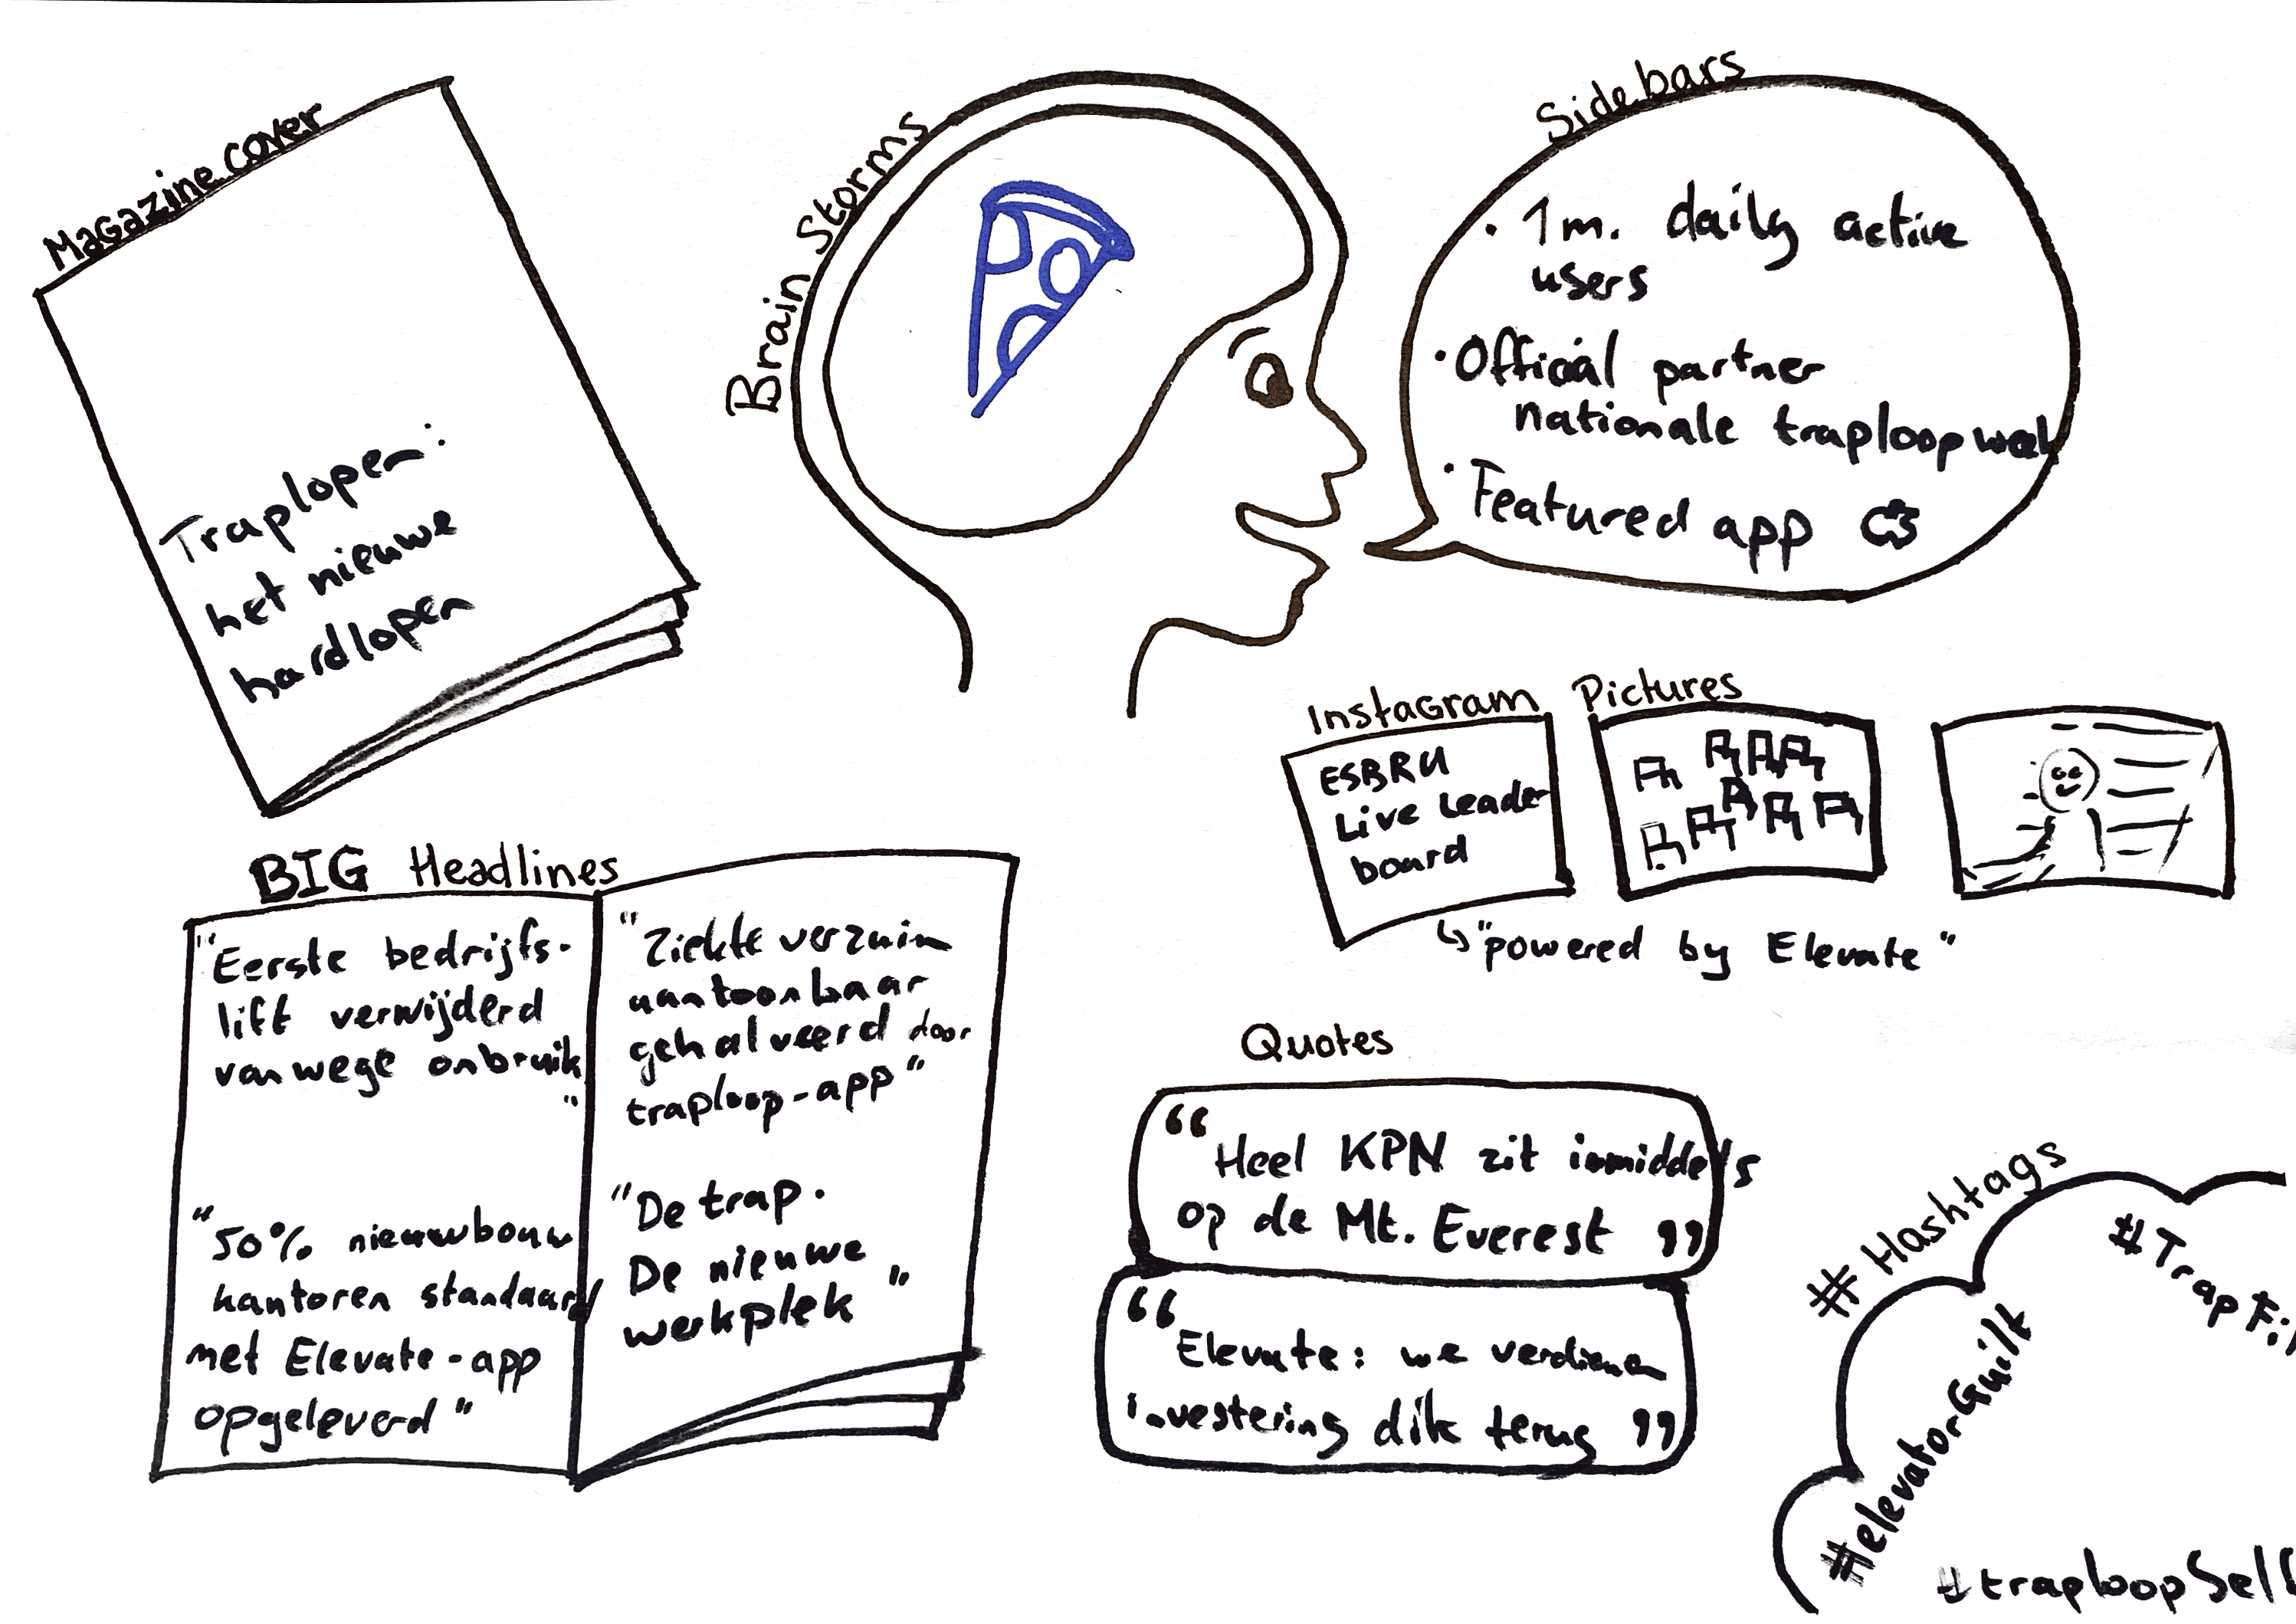 Magazine cover
Traplopen:
het nieuwe
hardlopen
Brain Storms
Sidebars
· 1m. daily active
users
· Official partner
nationale traploopweek
· Featured app
Instagram Pictures
ESBRU
Live Leader
board
↳ "powered by Elevate"
BIG Headlines
"Eerste bedrijfs-
lift verwijderd
vanwege onbruik
"
"50% nieuwbouw
kantoren standaard
met Elevate-app
opgeleverd"
"Ziekte verzuim
aantoonbaar
gehalveerd door
traploop-app"
"De trap.
De nieuwe
werkplek"
Quotes
“Heel KPN zit inmiddels
op de Mt. Everest”
“Elevate: we verdienen
investering dik terug”
# Hashtags
#TrapFi
#elevatorGuilt
#traploopSelf